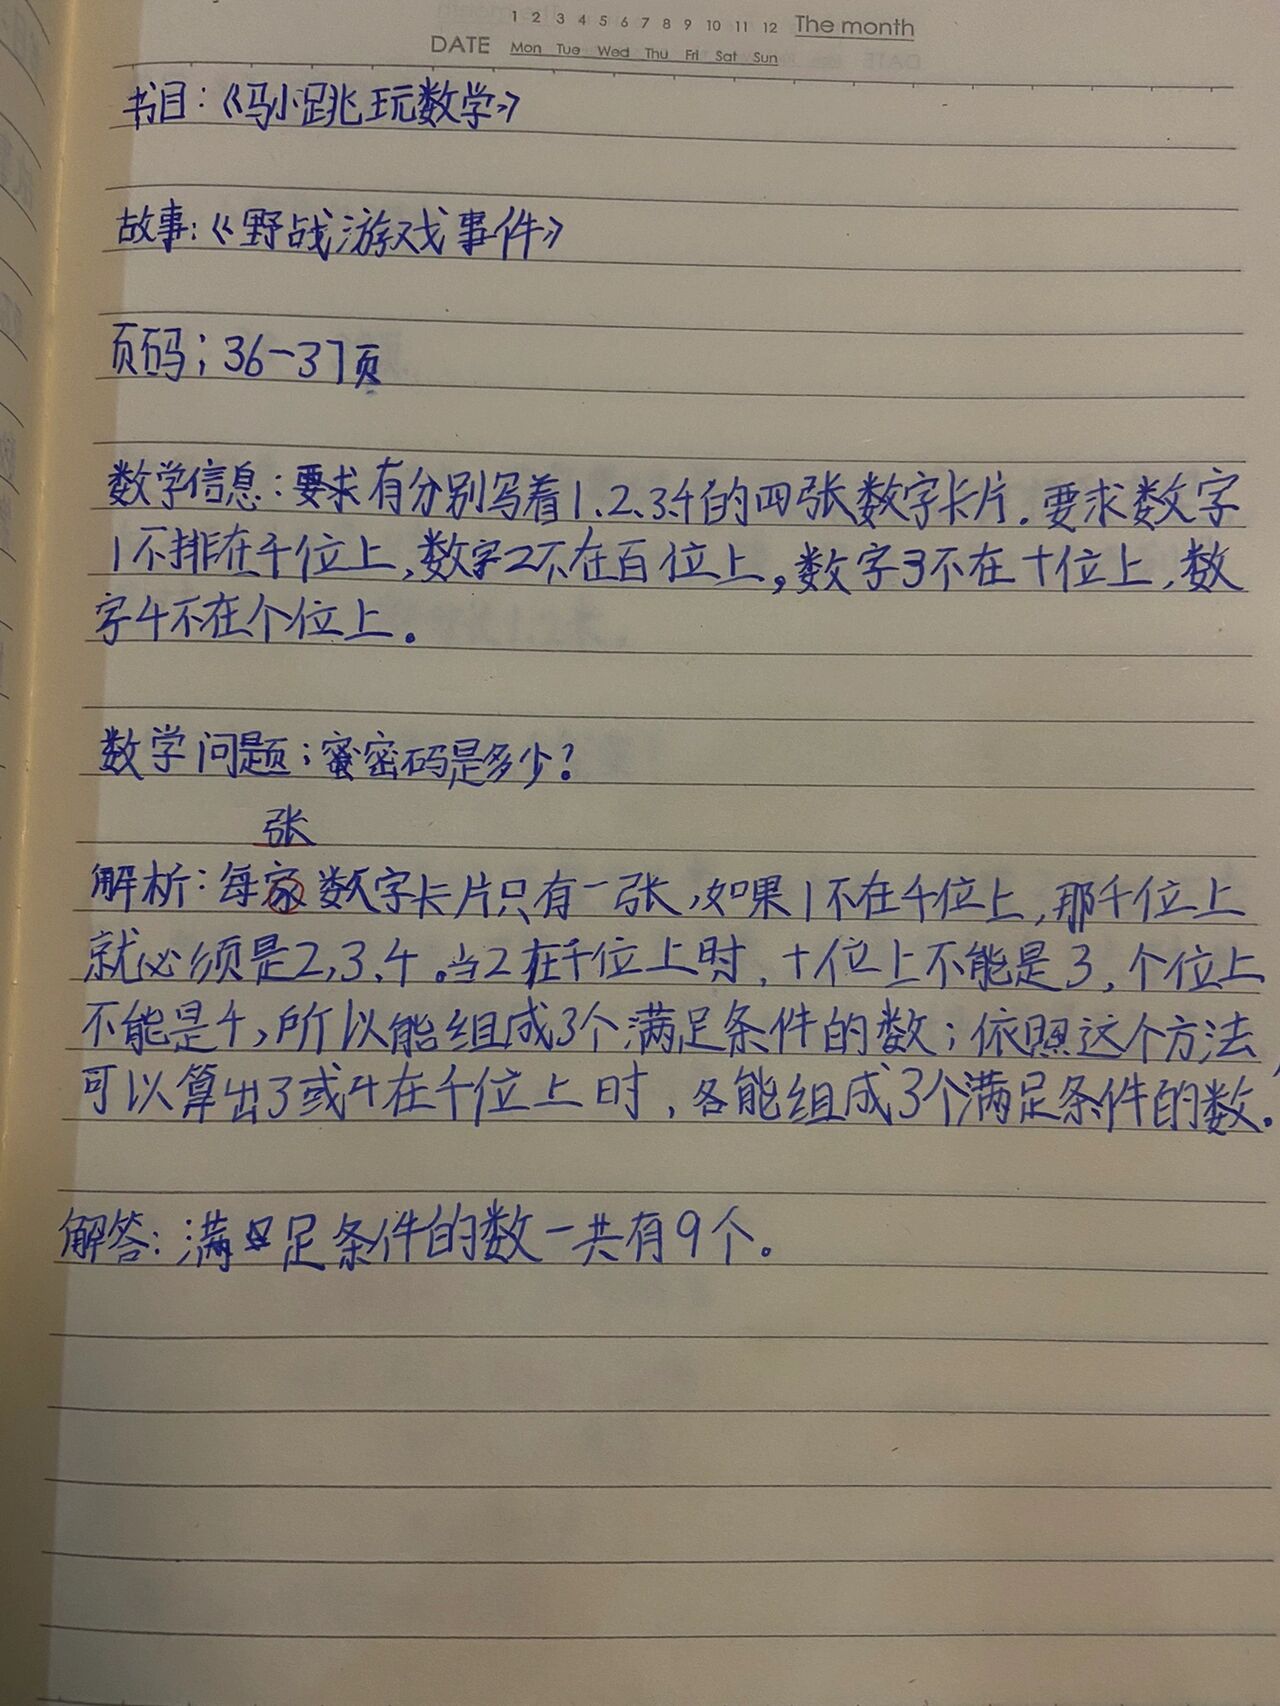 1 2 3 4 5 6 7 8 9 10 11 12 The month
DATE Mon Tue Wed Thu Fri Sat Sun
书目：《马小跳玩数学》
故事：《野战游戏事件》
页码；36－37页
数学信息：要求有分别写着1、2、3、4的四张数字卡片．要求数字
1不排在千位上，数字2不在百位上，数字3不在十位上，数
字4不在个位上。
数学问题；蜜密码是多少？
张
解析：每家数字卡片只有一张，如果1不在千位上，那千位上
就必须是2，3、4。当2在千位上时，十位上不能是3，个位上
不能是4，所以能组成3个满足条件的数；依照这个方法，
可以算出3或4在千位上时，各能组成3个满足条件的数．
解答：满足条件的数一共有9个。